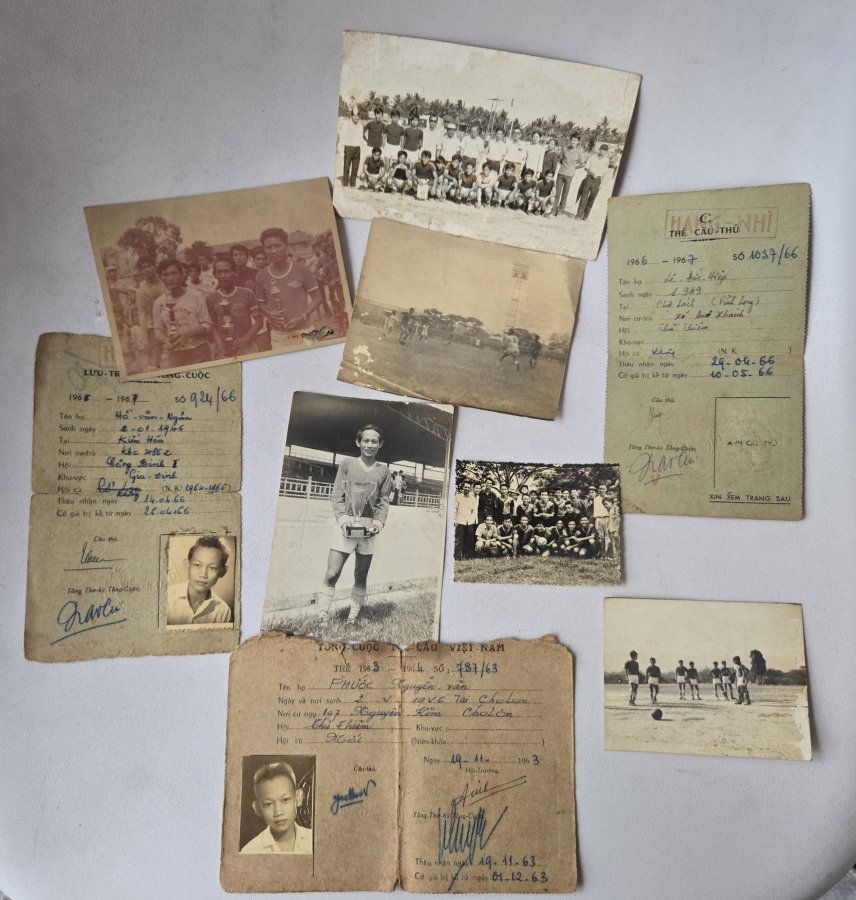 C
HẠNG-NHÌ
THẺ CẦU-THỦ
1966 - 1967 SỐ 1037/66
Tên họ Lê Đức Hiệp
Sanh ngày 1949
Tại Chợ Lách (Vĩnh Long)
Nơi cư-trú
Hội Thủ Thiêm
Khu-vực
Hội cũ không (N.K. )
Thâu nhận ngày 29-04-66
Có giá trị kể từ ngày 10-05-66
Cầu thủ,
Tổng Thơ-ký Tổng-Cuộc,
ẢNH CẦU THỦ
XIN XEM TRANG SAU
LƯU-TR TỔNG-CUỘC
1966 - 1967 SỐ 924/66
Tên họ Hồ-văn-Ngân
Sanh ngày 2-01-1946
Tại Kiến Hòa
Nơi cư-trú Kho
Hội Công Binh I
Khu-vực Gia-Định
Hội cũ (N.K. 1964-1965)
Thâu nhận ngày 14.04.66
Có giá trị kể từ ngày 25.04.66
Cầu thủ,
Tổng Thơ-ký Tổng-Cuộc,
TỔNG-CUỘC TÚC CẦU VIỆT-NAM
THẺ 1963 - 1964 SỐ: 787/63
Tên họ PHƯỚC Nguyễn văn
Ngày và nơi sanh 2 V 1946 Tại Cholon
Nơi cư ngụ 107 Nguyễn Kim Cholon
Hội Thủ Thiêm Khu-vực :
Hội cũ Mới (Niên-khóa )
Ngày 19-11- 1963
Cầu-thủ,
Hội-Trưởng,
Tổng Thơ-Ký Tổng-Cuộc
Thâu nhận ngày 19-11-63
Có giá trị kể từ ngày 01-12-63